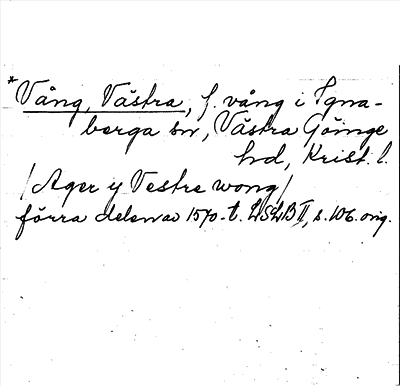 *Vång, Västra, f. vång i Igna-
berga sn, Västra Göinge
hd, Krist. l.
/Ager y Vestre wong/
förra delen av 1570-t. LSLB II, s. 106. orig.